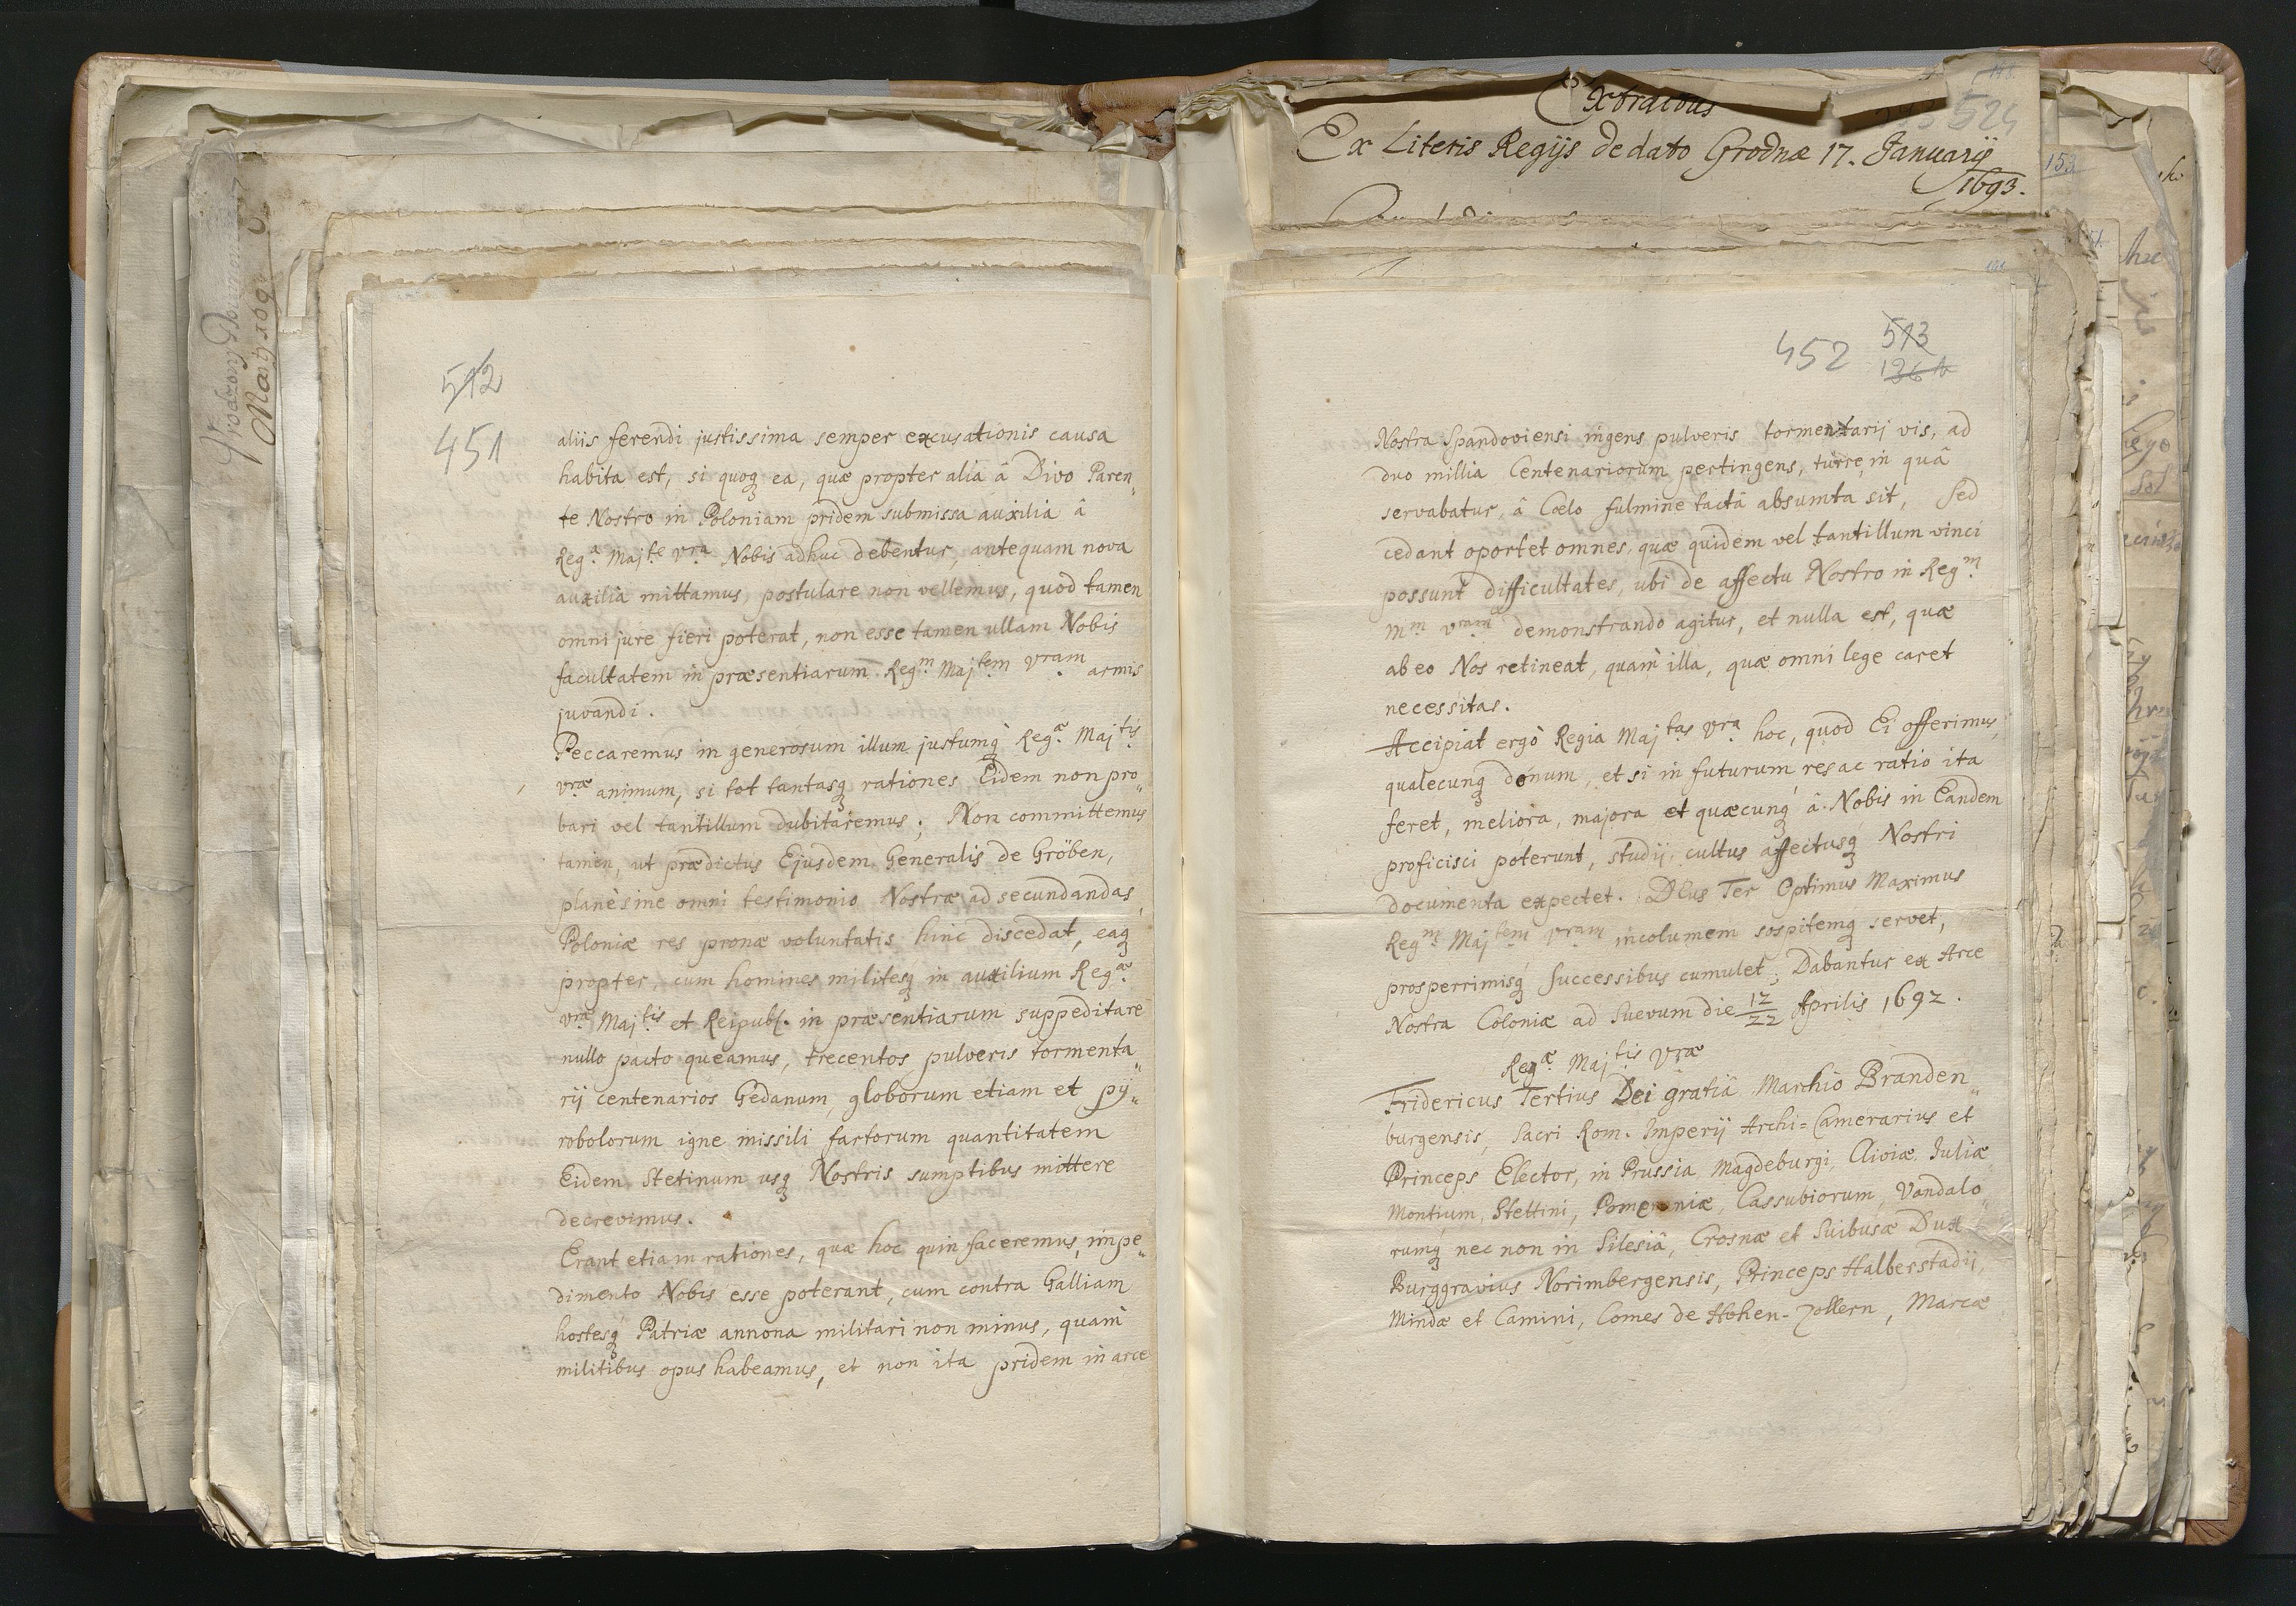 512
451
aliis ferendi justissima semper excusationis causa
habita est, si quoq ea, quæ propter alia â Divo Paren„
te Nostro in Poloniam pridem submissa auxilia â
Reg.â Maj.te Vra Nobis adhuc debentur, antequam nova
auxilia mittamus, postulare non vellemus, quod tamen
omni jure fieri poterat, non esse tamen ullam Nobis
facultatem in præsentiarum Reg.m Maj.tem Vram armis
juvandi.
Peccaremus in generosum illum justumq Reg.æ Maj.tis
Vræ animum, si tot tantasq rationes Eidem non pro„
bari vel tantillum dubitaremus; Non committemus
tamen, ut prædictus Ejusdem Generalis de Gröben,
planè sine omni testimonio Nostræ ad secundandas
Poloniæ res pronæ voluntatis hinc discedat, eaq
propter, cum homines militesq in auxilium Reg.æ
Vræ Maj.tis et Reipubl. in præsentiarum suppeditare
nullo pacto queamus, trecentos pulveris tormenta„
rij centenarios Gedanum, globorum etiam et py„
robolorum igne missili fartorum quantitatem
Eidem Stetinum usq Nostris sumptibus mittere
decrevimus.
Erant etiam rationes, quæ hoc quin faceremus, impe„
dimento Nobis esse poterant, cum contra Galliam
hostesq Patriæ annona militari non minus, quam
militibus opus habeamus, et non ita pridem in arce
Extractus
524
Ex Literis Regijs de dato Grodnæ 17. Januarij
1693.
153
452 513
Nostra Spandoviensi ingens pulveris tormentarij vis, ad
duo millia Centenariorum pertingens, turre, in quâ
servabatur, â Cœlo fulmine tactâ absumta sit, Sed
cedant oportet omnes, quæ quidem vel tantillum vinci
possunt difficultates, ubi de affectu Nostro in Reg.m
M.m Vram demonstrando agitur, et nulla est, quæ
ab eo Nos retineat, quam illa, quæ omni lege caret
necessitas.
Accipiat ergò Regia Maj.tas Vra hoc, quod Ei offerimus,
qualecunq donum, et si in futurum res ac ratio ita
feret, meliora, majora et quæcunq â Nobis in Eandem
proficisci poterunt, studij, cultus affectusq Nostri
documenta expectet. DEus Ter Optimus Maximus
Reg.m Maj.tem Vram incolumem sospitemq servet,
prosperrimisq successibus cumulet; Dabantur ex Arce
Nostra Coloniæ ad Suevum die 12/22 Aprilis 1692.
Reg.æ Maj.tis Vræ
Fridericus Tertius Dei gratiâ Marchio Branden„
burgensis, Sacri Rom. Imperij Archi=Camerarius et
Princeps Elector, in Prussia, Magdeburgi, Cliviæ, Juliæ
Montium, Stettini, Pomeraniæ, Cassubiorum, Vandalo„
rumq nec non in Silesiâ, Crosnæ et Suibusæ Dux
Burggravius Norimbergensis, Princeps Halberstadij,
Mindæ et Camini, Comes de Hohen-Zollern, Marcæ